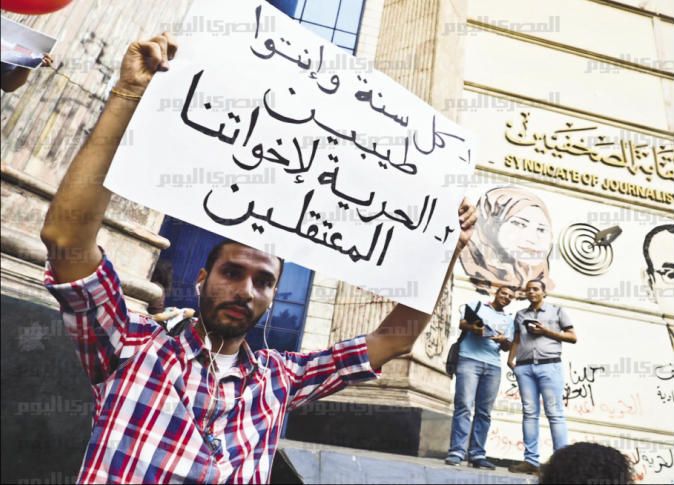 ١ـ كل سنة وإنتوا
طيبين
٢ـ الحرية لإخواتنا
المعتقلين
نقابة الصحفيين
SYNDICATE OF JOURNALIST
المصري اليوم
الحرية